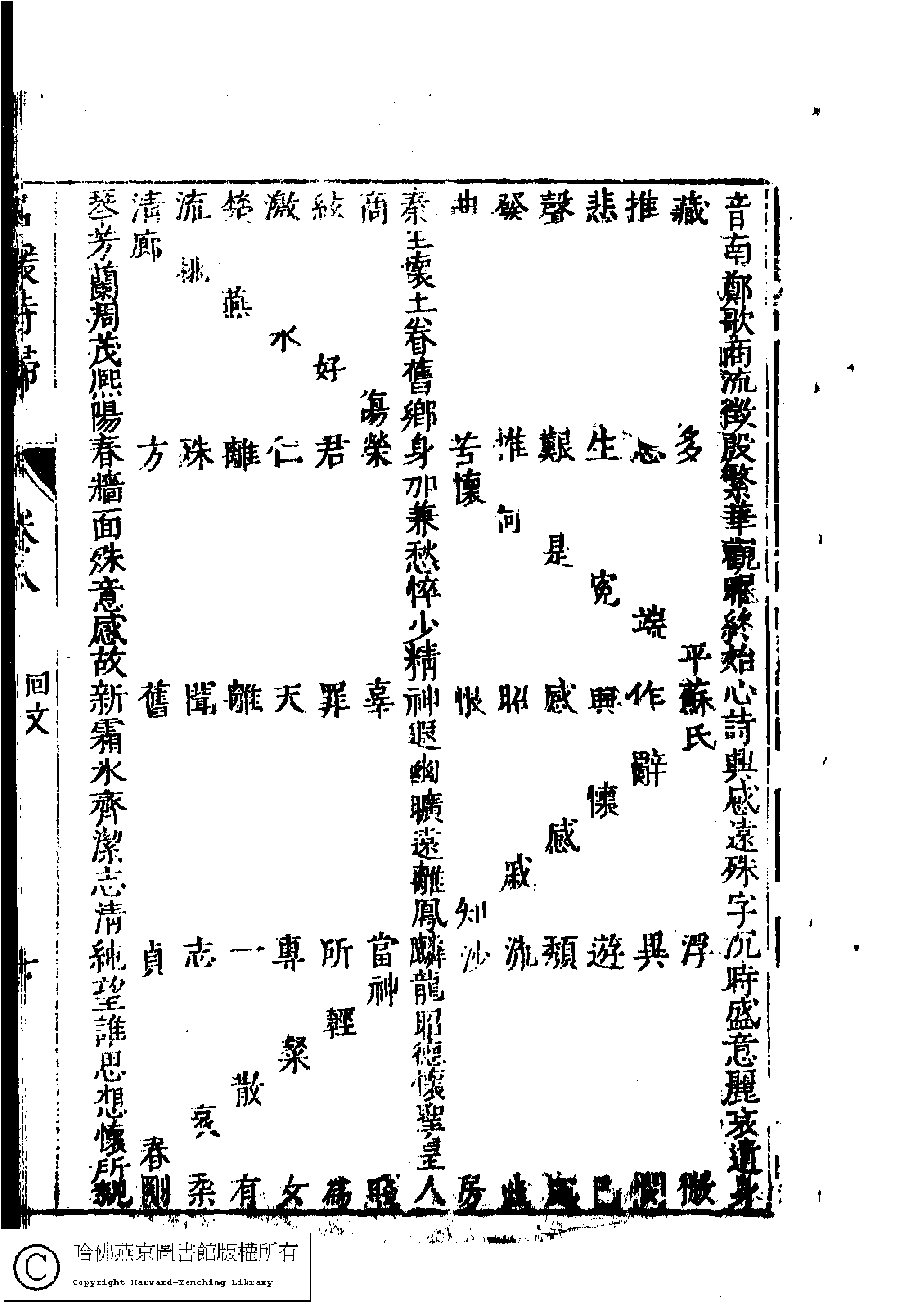 音南鄭歌商流徵殷繁華觀曜終始心詩興感遠殊字沉時盛意麗哀遺身
藏 多 平蘇氏 浮 微
推 忘 端 作 辭 異 憫
悲 生 冤 興 懷 遊 己
聲 艱 是 感 感 頹
發 惟 何 昭 戚 流
曲 苦懷 恨 知沙 房
秦王懷土眷舊鄉身加兼愁悴少精神遐幽曠遠離鳳麟龍昭德懷聖皇人
商 傷榮 辜 當神
絃 好君 罪 所 輕
激 水 仁 天 專 粲 女
楚 燕 離 離 一 散 有
流 桃 殊 聞 志 哀 柔
清廊 方 舊 貞 春剛
琴芳蘭凋茂熙陽春牆面殊意感故新霜冰齊潔志清純望誰思想懷所親
詩歸
回文
哈佛燕京圖書館版權所有
Copyright Harvard-Yenching Library